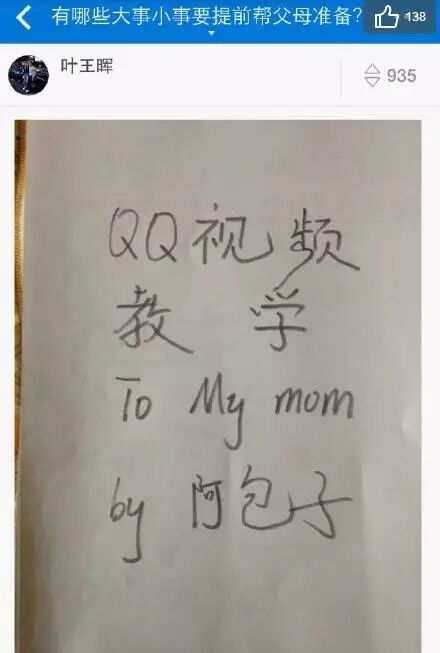 有哪些大事小事要提前帮父母准备?
138
叶王晖
935
QQ视频
教学
To My mom
by 阿包子